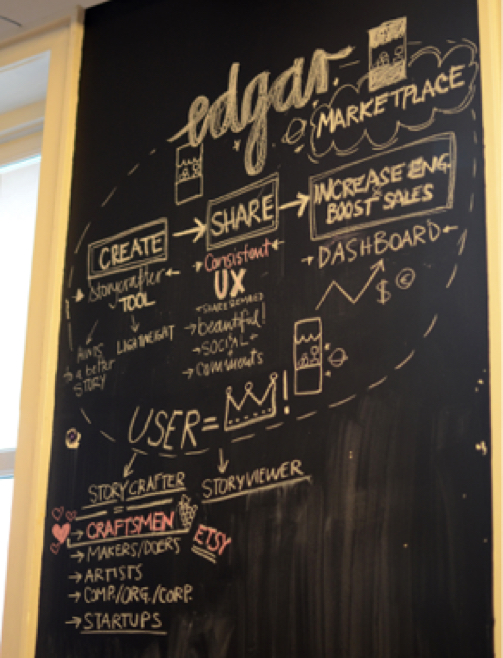 edgar
MARKETPLACE
CREATE → SHARE → INCREASE ENG.
BOOST SALES
Storycrafter
TOOL
LIGHTWEIGHT
a better
STORY
Consistent
UX
→ beautiful!
→ SOCIAL
→ Comments
→ DASHBOARD ←
$ €
USER = !
STORYCRAFTER
STORYVIEWER
→ CRAFTSMEN
ETSY
→ MAKERS/DOERS
→ ARTISTS
→ COMP./ORG./CORP.
→ STARTUPS